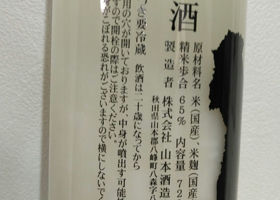 酒
原材料名 米(国産)、米麹(国産
精米歩合 65% 内容量 72
製造者 株式会社 山本酒造
秋田県山本郡八峰町八森字八
き要冷蔵 飲酒は二十歳になってから
用の穴が開いておりますが、中身が噴出す可能
すので開栓の際はご注意ください
がこぼれる恐れがございますので横にしないで